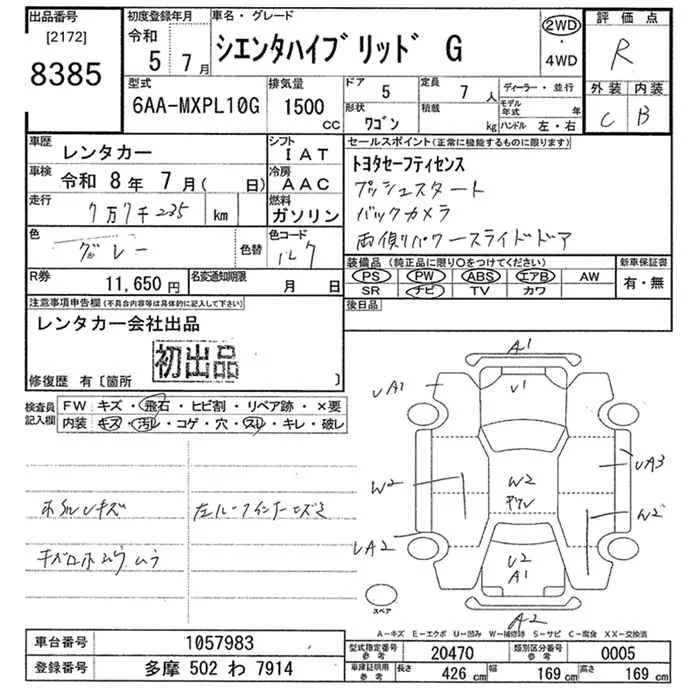 出品番号 初度登録年月 車名・グレード 2WD 評価点
[2172] 令和 5 7月 シエンタハイブリッド G ・ R
8385 4WD
型式 排気量 ドア 5 定員 7人 ディーラー・並行 外装 内装
6AA-MXPL10G 1500cc 形状 ワゴン 積載 kg モデル年式 年 C B
ハンドル 左・右
車歴 レンタカー シフト IAT セールスポイント(正常に機能するものに限ります)
車検 令和 8年 7月( 日) 冷房 AAC トヨタセーフティセンス
走行 7万7千235 km 燃料 ガソリン プッシュスタート
バックカメラ
色 グレー 色替 色コード 1L7 両側パワースライドドア
R券 11,650円 名変通知期限 月 日 装備品(純正品に限り○をつけてください) 新車保証書
PS PW ABS エアB AW 有・無
SR ナビ TV カワ
注意事項申告欄(不具合内容等は具体的に記入して下さい) 後日品
レンタカー会社出品
初出品
修復歴 有〔箇所
検査員記入欄 FW キズ・飛石・ヒビ割・リペア跡・×要
内装 キズ・汚レ・コゲ・穴・スレ・キレ・破レ
A1
UA1 U1
UA3
W2 W2 W2
UA2
U2
A1
A2
スペア
A-キズ E-エクボ U-凹み W-補修跡 S-サビ C-腐食 XX-交換済
車台番号 1057983 型式指定番号 参考 20470 類別区分番号 参考 0005
登録番号 多摩 502 わ 7914 車庫証明用 参考 長さ 426cm 幅 169cm 高さ 169cm